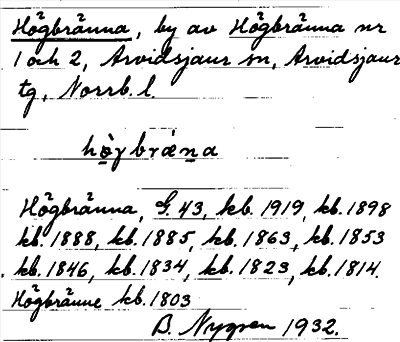 Högbränna, by av Högbränna nr
1 och 2, Arvidsjaur sn, Arvidsjaur
tg, Norrb. l.
hö̀gbrǽna
Högbränna, G. 43, kb. 1919, kb. 1898
kb. 1888, kb. 1885, kb. 1863, kb. 1853
kb. 1846, kb. 1834, kb. 1823, kb. 1814.
Högbränne kb. 1803
B. Nygren 1932.